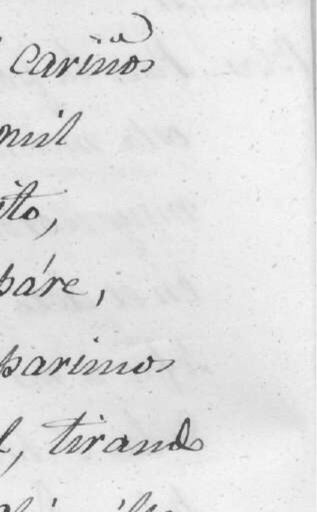 cariños
mil
ito,
páre,
parimos
l, tirando